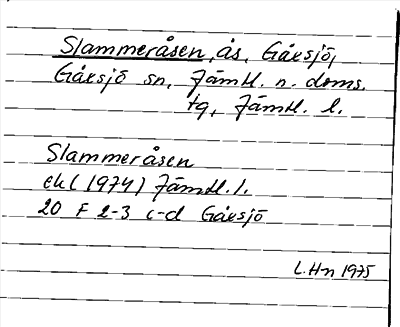 Slammeråsen, ås, Gåxsjö,
Gåxsjö sn, Jämtl. n. doms.
tg, Jämtl. l.
Slammeråsen
ek (1974) Jämtl. l.
20 F 2-3 c-d Gåxsjö
L. Hn 1975